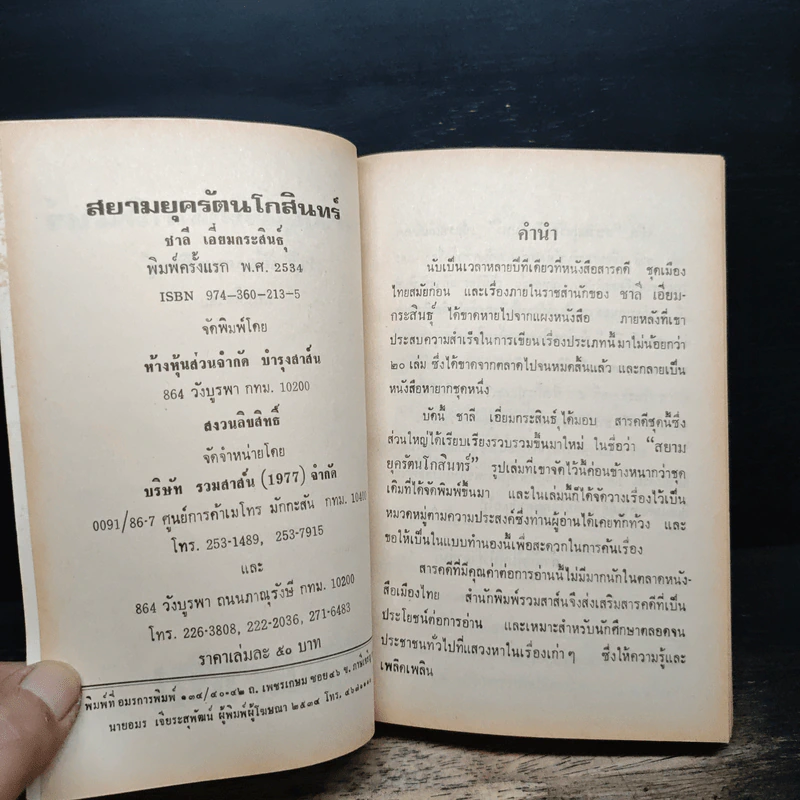 สยามยุครัตนโกสินทร์
ชาลี เอี่ยมกระสินธุ์
พิมพ์ครั้งแรก พ.ศ. 2534
ISBN 974-360-213-5
จัดพิมพ์โดย
ห้างหุ้นส่วนจำกัด บำรุงสาส์น
864 วังบูรพา กทม. 10200
สงวนลิขสิทธิ์
จัดจำหน่ายโดย
บริษัท รวมสาส์น (1977) จำกัด
0091/86-7 ศูนย์การค้าเมโทร มักกะสัน กทม. 10400
โทร. 253-1489, 253-7915
และ
864 วังบูรพา ถนนภาณุรังษี กทม. 10200
โทร. 226-3808, 222-2036, 271-6483
ราคาเล่มละ ๕๐ บาท
พิมพ์ที่ อมรการพิมพ์ ๑๓๔/๔๐-๔๒ ถ. เพชรเกษม ซอย๔๖ ข.
นายอมร เจียระสุพัฒน์ ผู้พิมพ์ผู้โฆษณา ๒๕๓๔ โทร.
คำนำ
นับเป็นเวลาหลายปีทีเดียวที่หนังสือสารคดี ชุดเมือง
ไทยสมัยก่อน และเรื่องภายในราชสำนักของ ชาลี เอี่ยม-
กระสินธุ์ ได้ขาดหายไปจากแผงหนังสือ ภายหลังที่เขา
ประสบความสำเร็จในการเขียนเรื่องประเภทนี้มาไม่น้อยกว่า
๒๐ เล่ม ซึ่งได้ขาดจากตลาดไปจนหมดสิ้นแล้ว และกลายเป็น
หนังสือหายากชุดหนึ่ง
บัดนี้ ชาลี เอี่ยมกระสินธุ์ ได้มอบ สารคดีชุดนี้ซึ่ง
ส่วนใหญ่ได้เรียบเรียงรวบรวมขึ้นมาใหม่ ในชื่อว่า “สยาม
ยุครัตนโกสินทร์” รูปเล่มที่เขาจัดไว้นี้ค่อนข้างหนากว่าชุด
เดิมที่ได้จัดพิมพ์ขึ้นมา และในเล่มนี้ก็ได้จัดวางเรื่องไว้เป็น
หมวดหมู่ตามความประสงค์ซึ่งท่านผู้อ่านได้เคยทักท้วง และ
ขอให้เป็นในแบบทำนองนี้เพื่อสะดวกในการค้นเรื่อง
สารคดีที่มีคุณค่าต่อการอ่านนี้ไม่มีมากนักในตลาดหนัง-
สือเมืองไทย สำนักพิมพ์รวมสาส์นจึงส่งเสริมสารคดีที่เป็น
ประโยชน์ต่อการอ่าน และเหมาะสำหรับนักศึกษาตลอดจน
ประชาชนทั่วไปที่แสวงหาในเรื่องเก่า ๆ ซึ่งให้ความรู้และ
เพลิดเพลิน